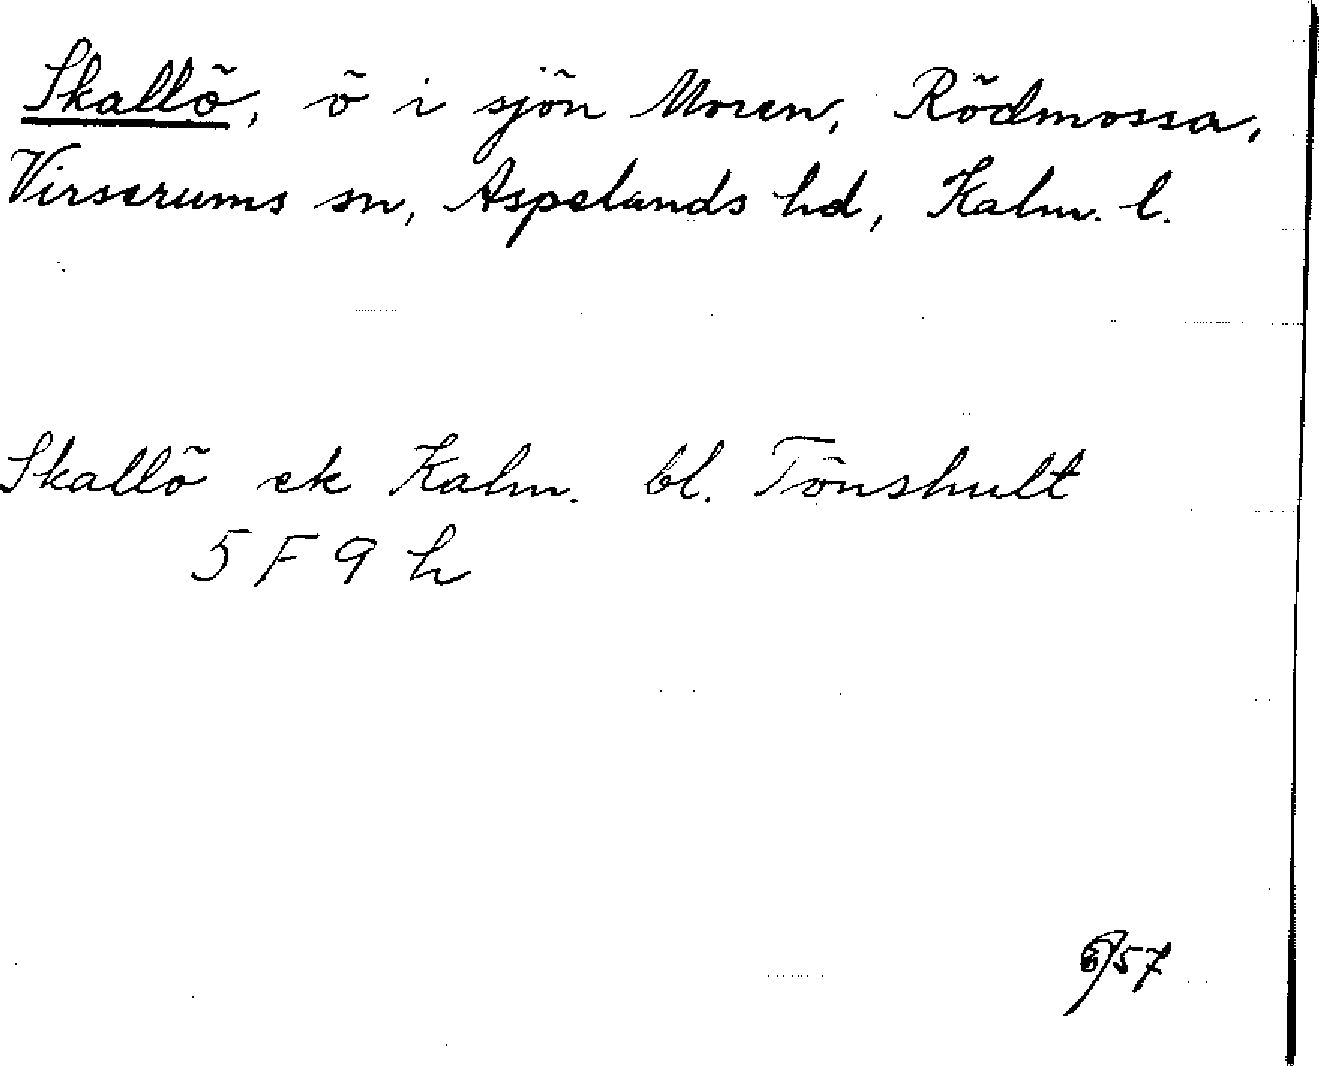 Skallö, ö i sjön Moren, Rödmossa,
Virserums sn, Aspelands hd, Kalm. l.
Skallö ek Kalm. bl. Tönshult
5 F 9 h
/57